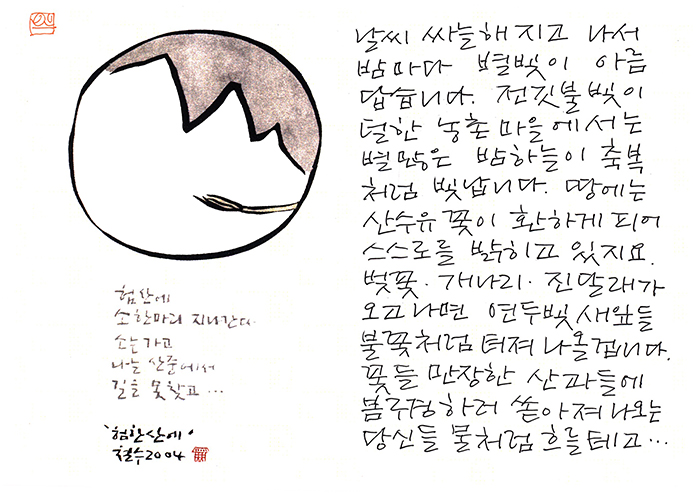 험산에
소한마리 지나간다.
소는가고
나는 산중에서
길을 못찾고...
'험한산에'
철수2004
날씨 싸늘해 지고 나서
밤마다 별빛이 아름
답습니다. 전깃불빛이
덜한 농촌마을에서는
별많은 밤하늘이 축복
처럼 빛납니다. 땅에는
산수유꽃이 환하게 피어
스스로를 밝히고 있지요.
벚꽃·개나리·진달래가
오고나면 연두빛새잎들
불꽃처럼 터져나올겁니다.
꽃들 만장한 산과들에
봄구경하러 쏟아져나오는
당신들 물처럼 흐를테고...